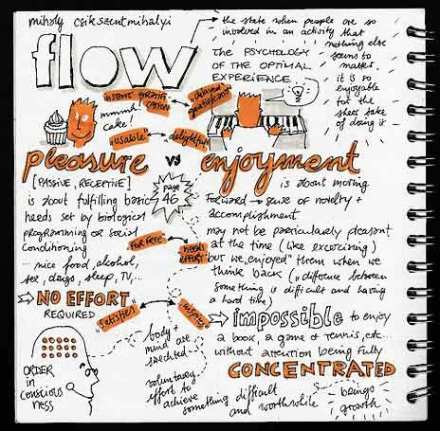 mihaly csikszentmihalyi
flow
the state when people are so
involved in an activity that
nothing else
seems to
matter.
it is so
enjoyable
for the
sheer sake
of doing it
THE PSYCHOLOGY
OF THE OPTIMAL
EXPERIENCE
mmmh!
cake!
usable
delightful
pleasure vs enjoyment
[PASSIVE, RECEPTIVE]
is about fulfilling basic
needs set by biological
programming or social
conditioning
nice food, alcohol,
sex, drugs, sleep, TV,...
page
46
is about moving
forward → sense of novelty +
accomplishment
may not be particularly pleasant
at the time (like excercising)
but we "enjoyed" them when we
think back (→ difference between
something is difficult and having
a hard time)
FOR FREE
NEEDS
EFFORT
⇒ NO EFFORT
REQUIRED
satisfies
⇒ impossible to enjoy
a book, a game of tennis, etc.
without attention being fully
CONCENTRATED
ORDER
in
CONSCIOUS
NESS
body +
mind are
stretched
voluntary
effort to
achieve
something difficult
and worthwhile
brings
growth